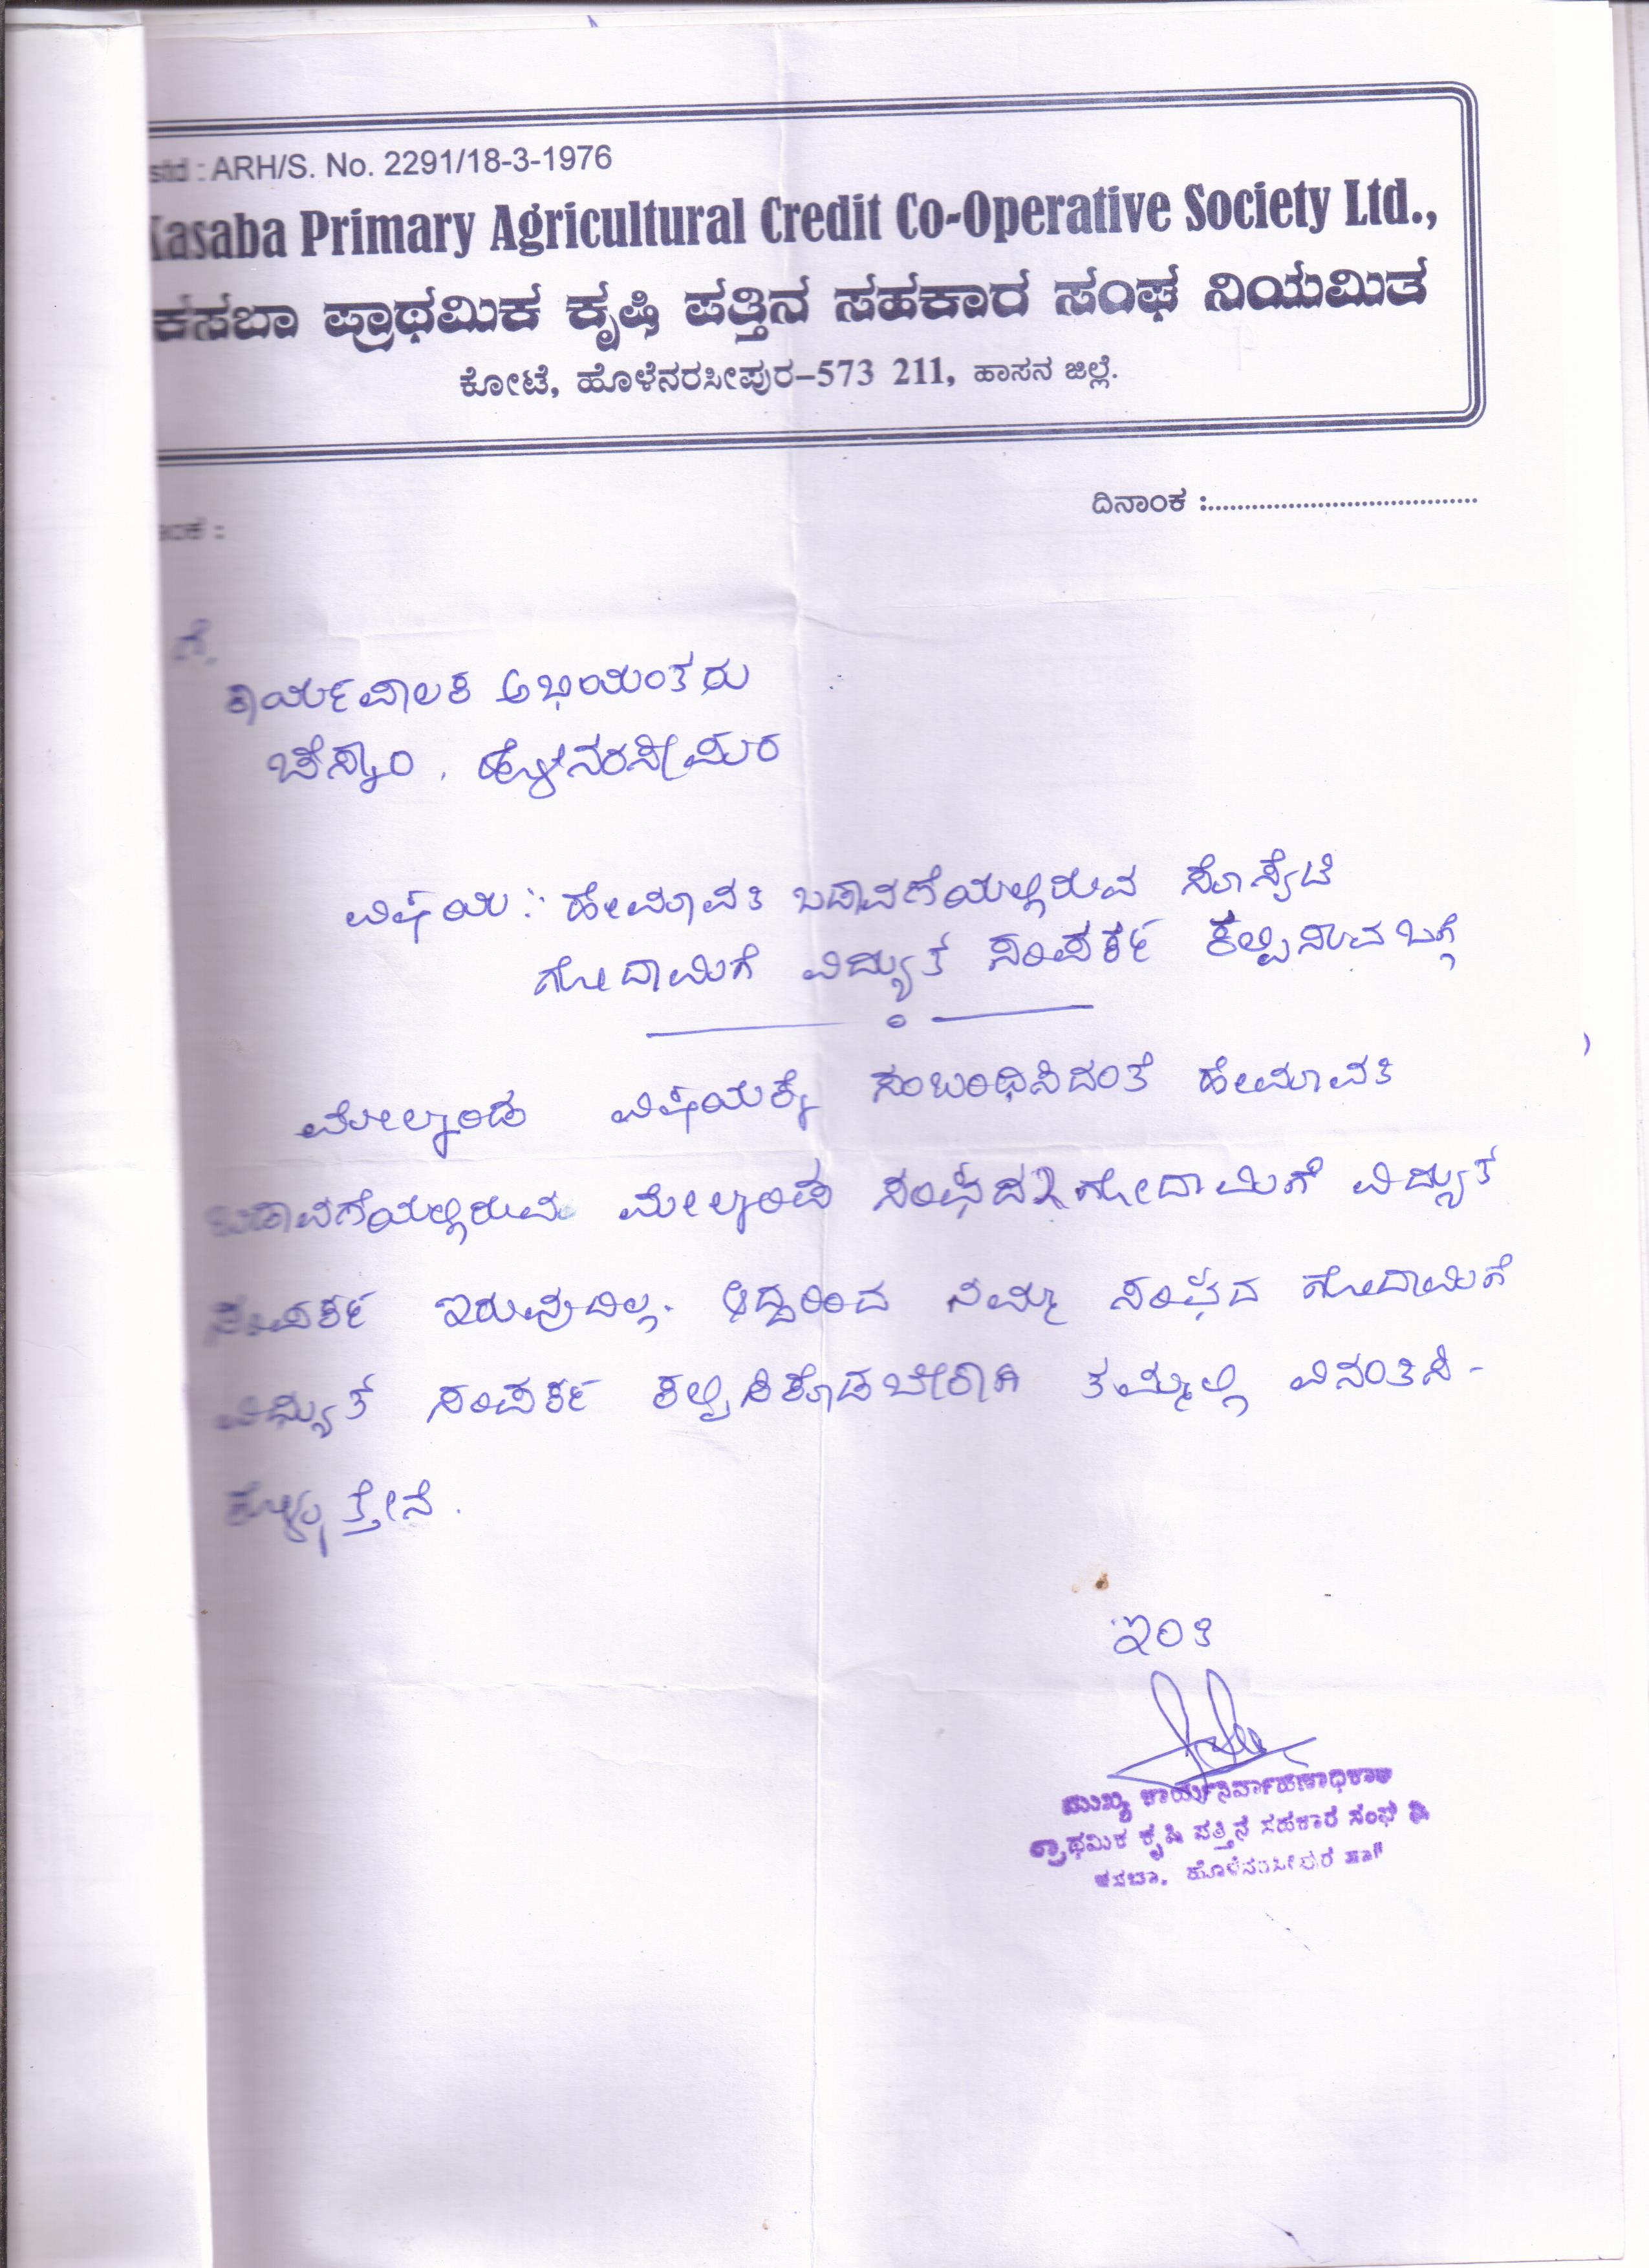 std : ARH/S. No. 2291/18-3-1976
Kasaba Primary Agricultural Credit Co-Operative Society Ltd.,
ಕಸಬಾ ಪ್ರಾಥಮಿಕ ಕೃಷಿ ಪತ್ತಿನ ಸಹಕಾರ ಸಂಘ ನಿಯಮಿತ
ಕೋಟೆ, ಹೊಳೆನರಸೀಪುರ–573 211, ಹಾಸನ ಜಿಲ್ಲೆ.
ದಿನಾಂಕ :
ಗೆ,
ಕಾರ್ಯಪಾಲಕ ಅಭಿಯಂತರು
ಚೆಸ್ಕಾಂ, ಹೊಳೆನರಸೀಪುರ
ವಿಷಯ: ಹೇಮಾವತಿ ಬಡಾವಣೆಯಲ್ಲಿರುವ ಸೊಸೈಟಿ
ಗೋದಾಮಿಗೆ ವಿದ್ಯುತ್ ಸಂಪರ್ಕ ಕಲ್ಪಿಸುವ ಬಗ್ಗೆ
ಮೇಲ್ಕಂಡ ವಿಷಯಕ್ಕೆ ಸಂಬಂಧಿಸಿದಂತೆ ಹೇಮಾವತಿ
ಬಡಾವಣೆಯಲ್ಲಿರುವ ಮೇಲ್ಕಂಡ ಸಂಘದ ಗೋದಾಮಿಗೆ ವಿದ್ಯುತ್
ಸಂಪರ್ಕ ಇರುವುದಿಲ್ಲ. ಆದ್ದರಿಂದ ನಮ್ಮ ಸಂಘದ ಗೋದಾಮಿಗೆ
ವಿದ್ಯುತ್ ಸಂಪರ್ಕ ಕಲ್ಪಿಸಿಕೊಡಬೇಕಾಗಿ ತಮ್ಮಲ್ಲಿ ವಿನಂತಿಸಿ-
ಕೊಳ್ಳುತ್ತೇನೆ.
ಇಂತಿ
ಮುಖ್ಯ ಕಾರ್ಯನಿರ್ವಾಹಣಾಧಿಕಾರಿ
ಪ್ರಾಥಮಿಕ ಕೃಷಿ ಪತ್ತಿನ ಸಹಕಾರ ಸಂಘ ನಿ
ಕಸಬಾ, ಹೊಳೆನರಸೀಪುರ ತಾ||